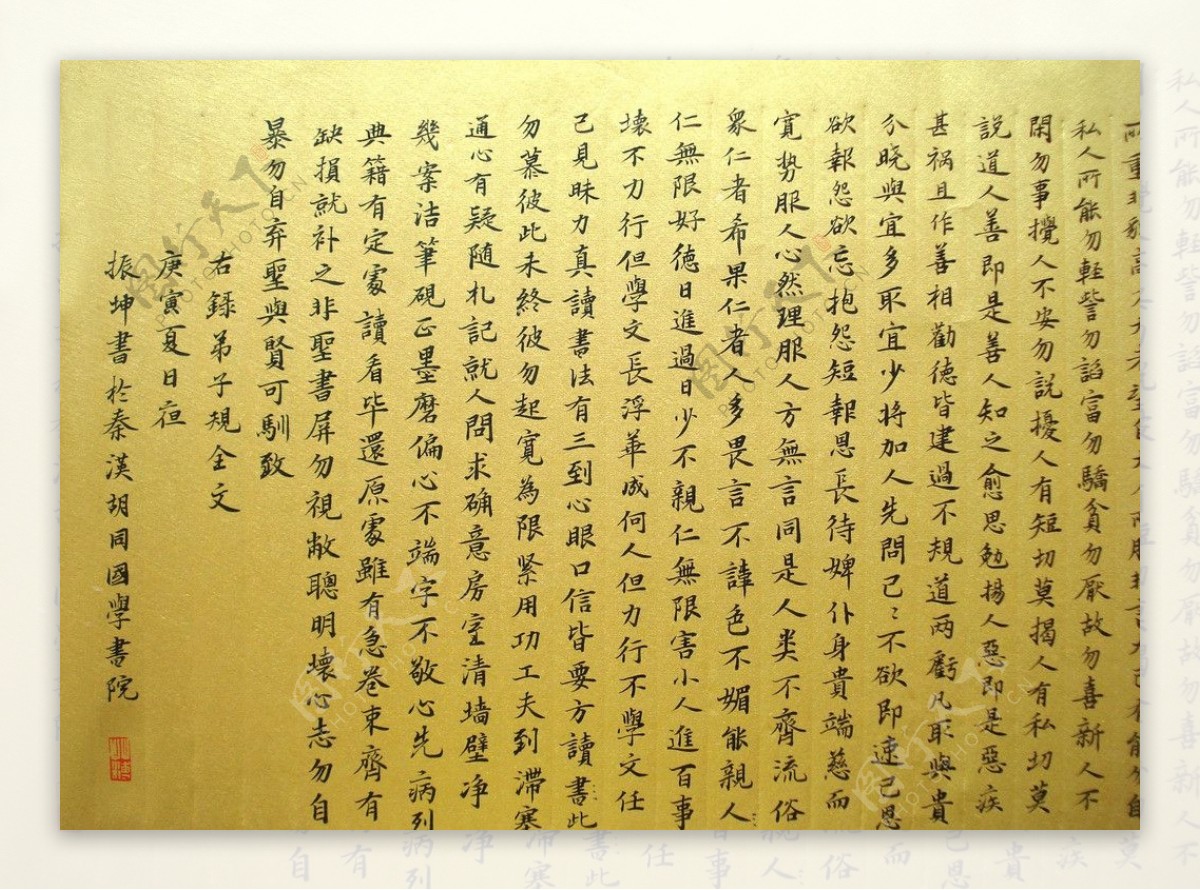 私人所能勿輕訾勿諂富勿驕貧勿厭故勿喜新人不
閑勿事攪人不安勿説擾人有短切莫揭人有私切莫
説道人善即是善人知之愈思勉揚人惡即是惡疾
甚禍且作善相勸德皆建過不規道两虧凡取與貴
分曉與宜多取宜少將加人先問己〻不欲即速已恩
欲報怨欲忘抱怨短報恩長待婢仆身貴端慈而
寬勢服人心然理服人方無言同是人类不齊流俗
衆仁者希果仁者人多畏言不諱色不媚能親人
仁無限好德日進過日少不親仁無限害小人進百事
壞不力行但學文長浮華成何人但力行不學文任
己見昧力真讀書法有三到心眼口信皆要方讀書此
勿慕彼此未終彼勿起寬為限緊用功工夫到滯塞
通心有疑随札記就人問求确意房室清墙壁净
幾案洁筆硯正墨磨偏心不端字不敬心先病列
典籍有定處讀看毕還原處雖有急卷束齊有
缺損就补之非聖書屏勿視敝聰明壞心志勿自
暴勿自弃聖與賢可馴致
右錄弟子規全文
庚寅夏日
振坤書於秦漢胡同國學書院